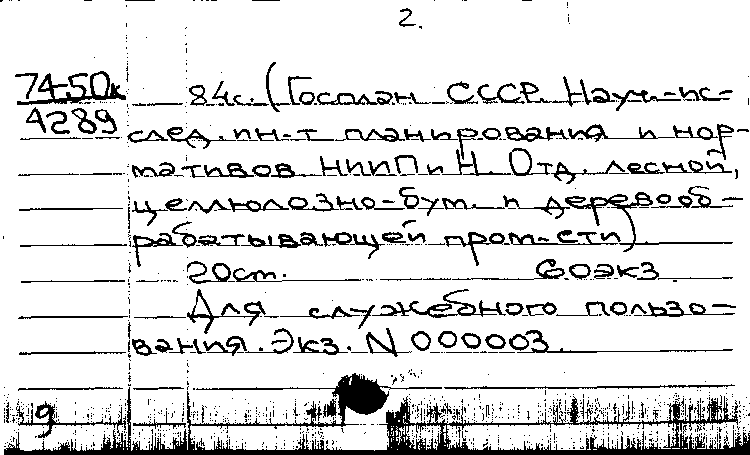 2.
74-50к
4289
84с. (Госплан СССР. Науч.-ис-
след. ин-т планирования и нор-
мативов НИИПиН. Отд. лесной,
целлюлозно-бум. и деревооб-
рабатывающей пром-сти)
20ст. 60экз
Для служебного пользо-
вания. Экз. N 000003.
9